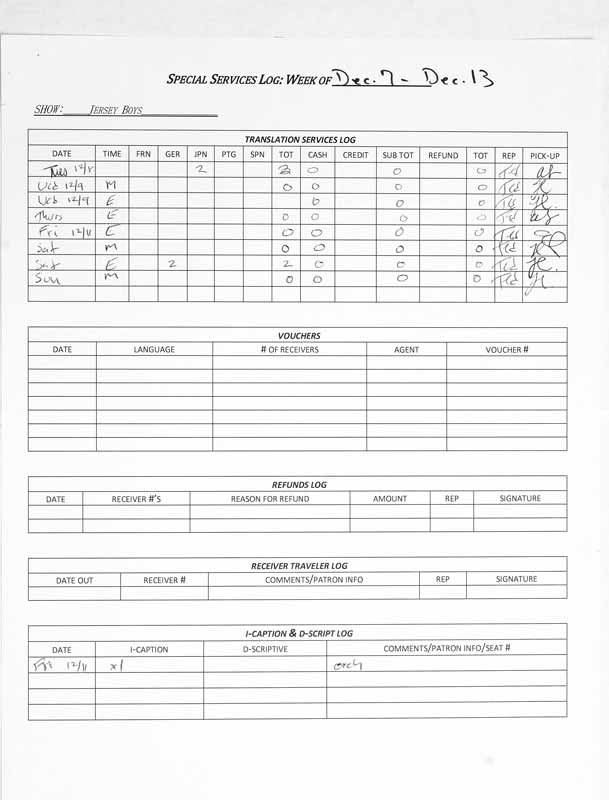 SPECIAL SERVICES LOG: WEEK OF Dec. 7 - Dec. 13
SHOW: JERSEY BOYS
TRANSLATION SERVICES LOG
DATE TIME FRN GER JPN PTG SPN TOT CASH CREDIT SUB TOT REFUND TOT REP PICK-UP
Tues 12/8 2 2 0 0 0 Ted
Wed 12/9 M 0 0 0 0 Ted
Wed 12/9 E 0 0 0 Ted
Thurs E 0 0 0 0 Ted
Fri 12/11 E 0 0 0 0 Ted
Sat M 0 0 0 0 Ted
Sat E 2 2 0 0 0 Ted
Sun M 0 0 0 0 Ted
VOUCHERS
DATE LANGUAGE # OF RECEIVERS AGENT VOUCHER #
REFUNDS LOG
DATE RECEIVER #'S REASON FOR REFUND AMOUNT REP SIGNATURE
RECEIVER TRAVELER LOG
DATE OUT RECEIVER # COMMENTS/PATRON INFO REP SIGNATURE
I-CAPTION & D-SCRIPT LOG
DATE I-CAPTION D-SCRIPTIVE COMMENTS/PATRON INFO/SEAT #
Fri 12/11 x1 orch